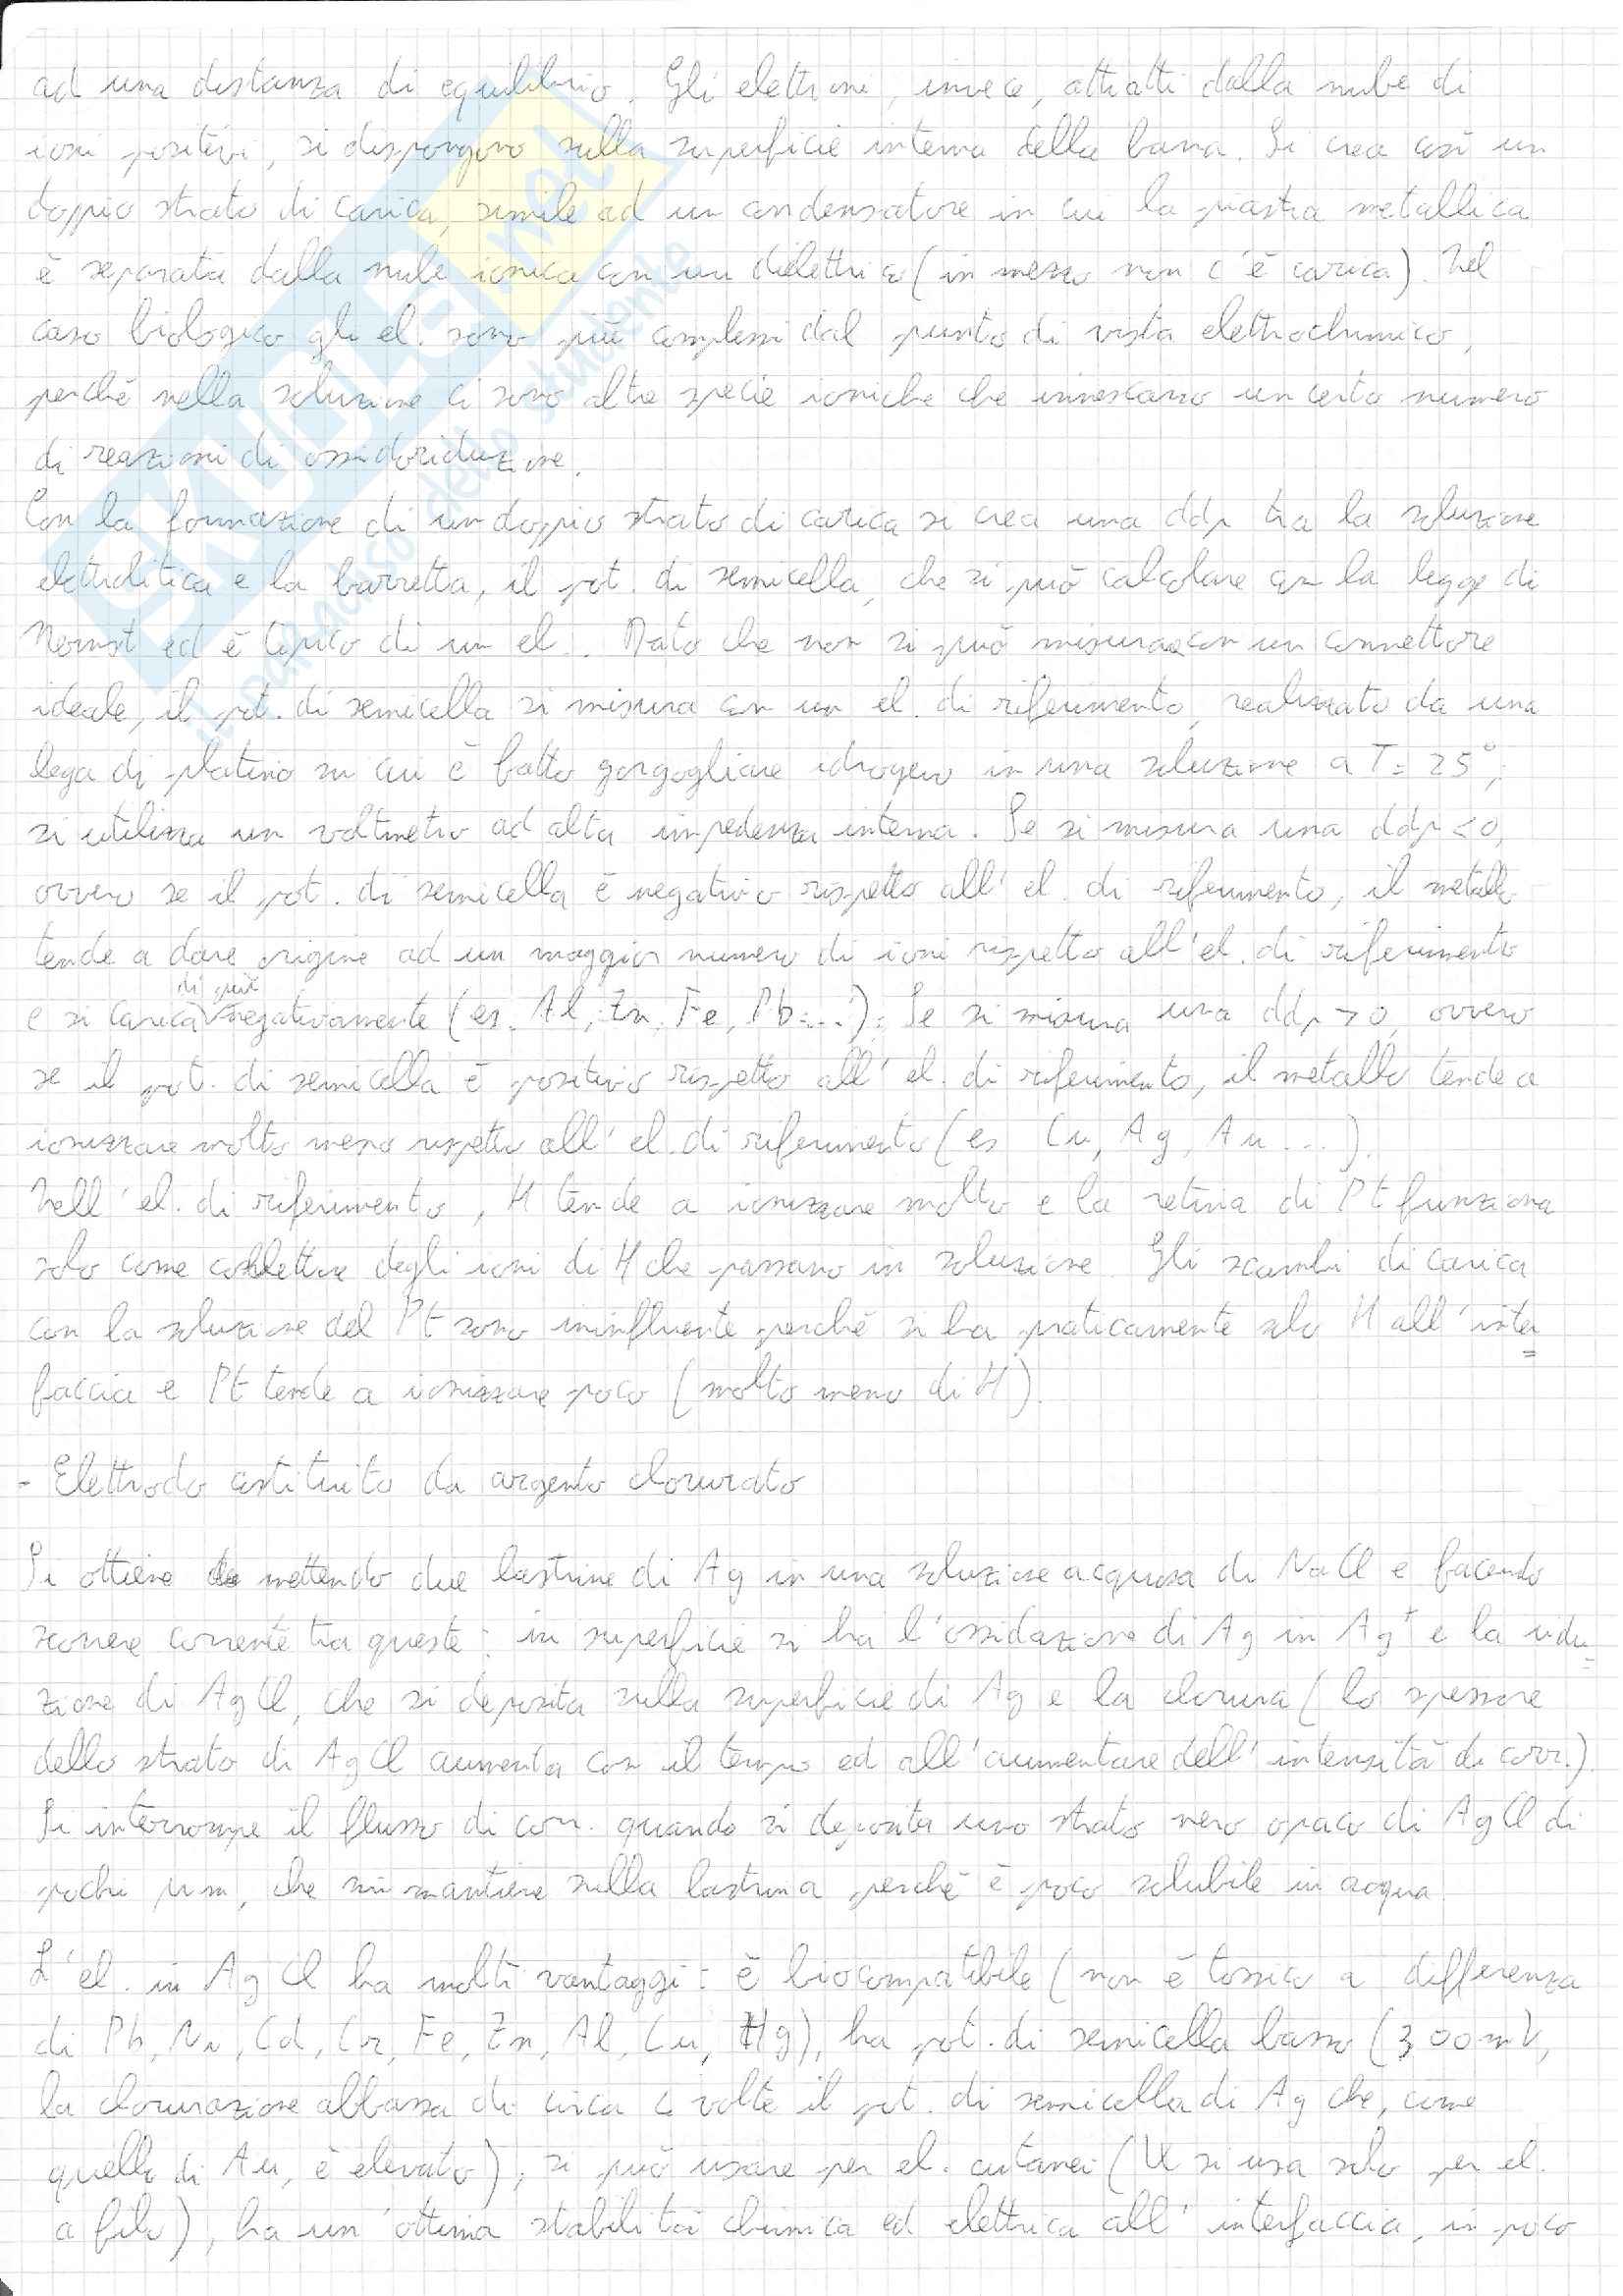 ad una distanza di equilibrio. Gli elettroni, invece, attratti dalla nube di
ioni positivi, si dispongono sulla superficie interna della barra. Si crea così un
doppio strato di carica, simile ad un condensatore in cui la piastra metallica
è separata dalla nube ionica con un dielettrico (in mezzo non c'è carica). Nel
caso biologico gli el. sono più complessi dal punto di vista elettrochimico,
perché nella soluzione ci sono altre specie ioniche che innescano un certo numero
di reazioni di ossidoriduzione.
Con la formazione di un doppio strato di carica si crea una ddp tra la soluzione
elettrolitica e la barretta, il pot. di semicella, che si può calcolare con la legge di
Nernst ed è tipico di un el.. Dato che non si può misurare con un connettore
ideale, il pot. di semicella si misura con un el. di riferimento, realizzato da una
lega di platino su cui è fatto gorgogliare idrogeno in una soluzione a T = 25°;
si utilizza un voltmetro ad alta impedenza interna. Se si misura una ddp < 0,
ovvero se il pot. di semicella è negativo rispetto all'el. di riferimento, il metallo
tende a dare origine ad un maggior numero di ioni rispetto all'el. di riferimento
e si carica di più negativamente (es. Al, Zn, Fe, Pb...). Se si misura una ddp > 0, ovvero
se il pot. di semicella è positivo rispetto all'el. di riferimento, il metallo tende a
ionizzare molto meno rispetto all'el. di riferimento (es Cu, Ag, Au ...).
Nell'el. di riferimento, H tende a ionizzare molto e la retina di Pt funziona
solo come collettore degli ioni di H che passano in soluzione. Gli scambi di carica
con la soluzione del Pt sono ininfluente perché si ha praticamente solo H all'inter
faccia e Pt tende a ionizzare poco (molto meno di H).
- Elettrodo costituito da argento clorurato
Si ottiene mettendo due lastrine di Ag in una soluzione acquosa di NaCl e facendo
scorrere corrente tra queste: in superficie si ha l'ossidazione di Ag in Ag⁺ e la ridu
zione di AgCl, che si deposita sulla superficie di Ag e la clorura (lo spessore
dello strato di AgCl aumenta con il tempo ed all'aumentare dell'intensità di corr.).
Si interrompe il flusso di corr. quando si deposita uno strato nero opaco di AgCl di
pochi μm, che si mantiene sulla lastrina perché è poco solubile in acqua.
L'el. in AgCl ha molti vantaggi: è biocompatibile (non è tossico a differenza
di Pb, Ni, Cd, Cr, Fe, Zn, Al, Cu, Hg), ha pot. di semicella basso (300mV,
la clorurazione abbassa di circa 4 volte il pot. di semicella di Ag che, come
quello di Au, è elevato), si può usare per el. cutanei ( si usa solo per el.
a filo), ha un'ottima stabilità chimica ed elettrica all'interfaccia, in poco